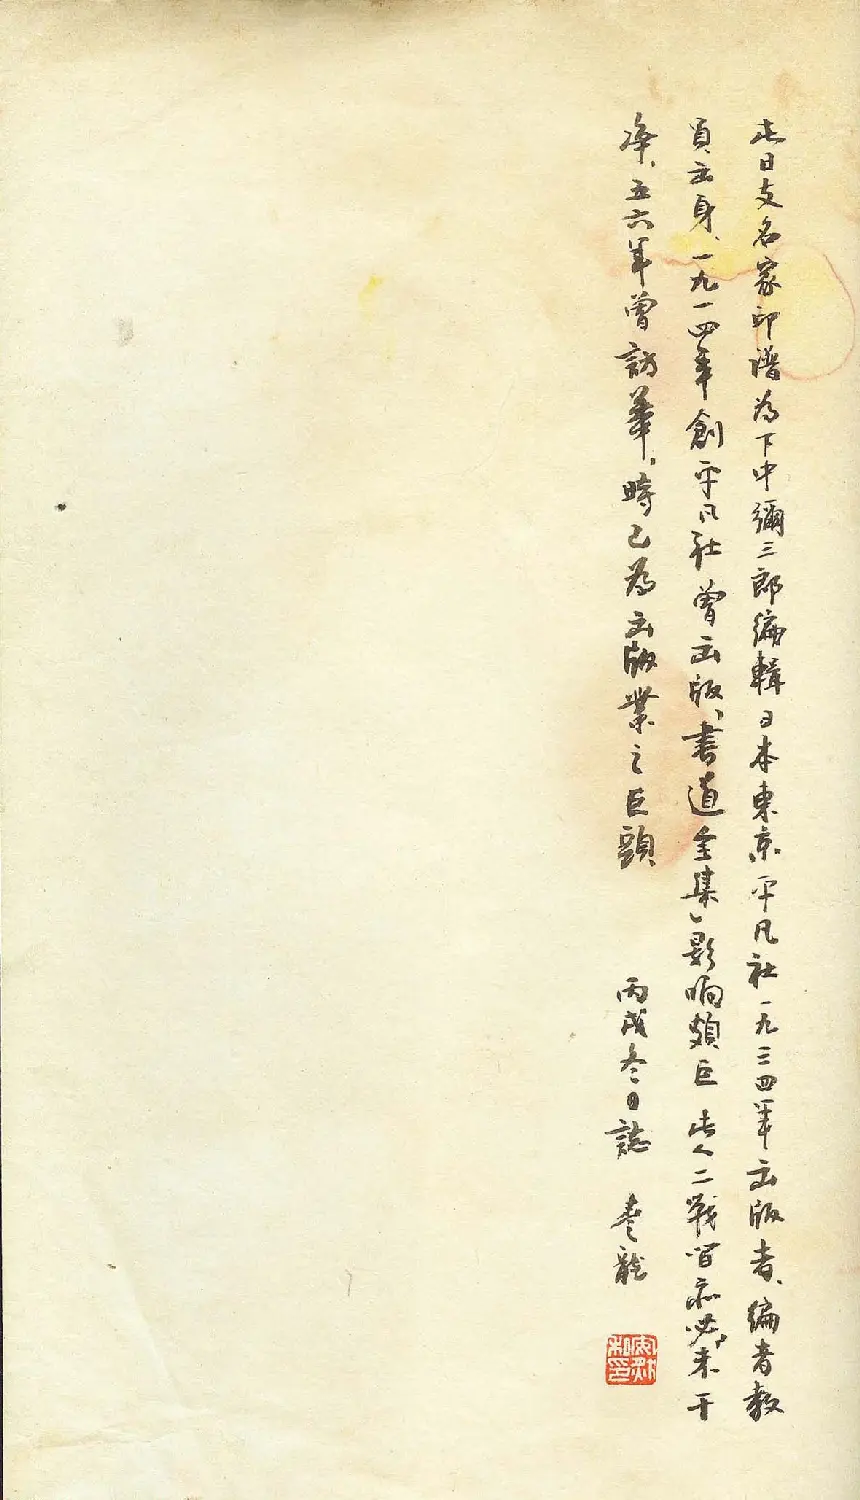 此日支名家印譜為下中彌三郎編輯日本東京平凡社一九三四年出版者、編者教
員出身、一九一四年創平凡社曾出版「書道全集」影响頗巨 此人二戰间亦必未干
净、五六年曾訪華，時已為出版業之巨頭
丙戌冬日誌 龍